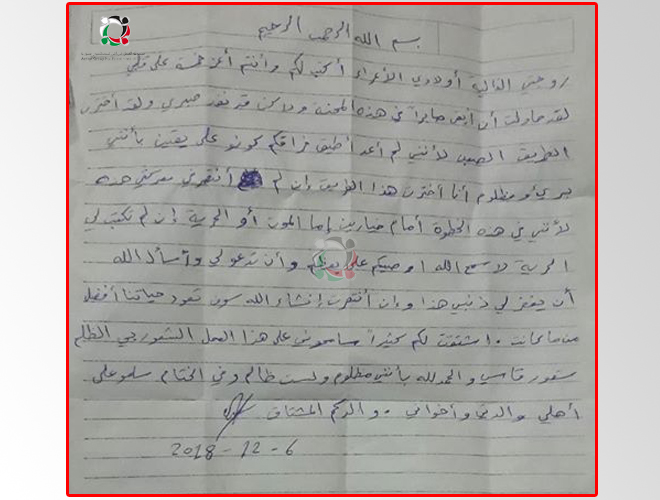 بسم الله الرحمن الرحيم
زوجتي الغالية أولادي الأعزاء أكتب لكم وأنتم أعز خمسة على قلبي
لقد حاولت أن أبقى صابراً في هذه المحنة ولاكن قد نفذ صبري ولقد أخترت
الطريق الصعب لأنني لم أعد أطيق فراقكم كونو على يقين بأنني
بريء ومظلوم أنا أخترت هذا الطريق إن لم أنتصر في معركتي هذه
لأنني في هذه الخطوة أمام خيارين إما الموت أو الحرية إن لم تكتب لي
الحرية لا سمح الله اوصيكم على بعظكم وأن تدعو لي وأسأل الله
أن يغفر لي ذنبي هذا وإن أنتصرت إنشاء الله سوف تعود حياتنا أفضل
من ما كانت . اشتقت لكم كثيراً سامحوني على هذا العمل الشعور بي الظلم
شعور قاسي والحمد لله بأنني مظلوم ولست ظالم وفي الختام سلمو على
أهلي والدتي وأخواني . والدكم المشتاق
6 - 12 - 2018